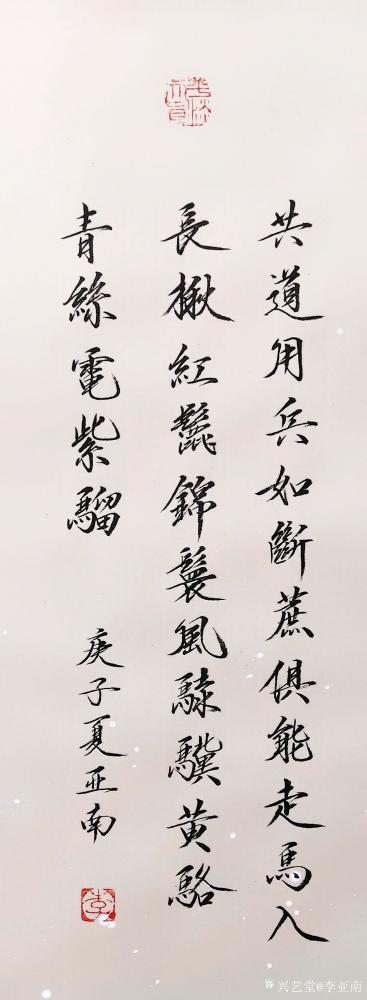 共道用兵如斷蔗俱能走馬入
長楸紅鬣錦鬟風騄驥黄駱
青絲電紫騮
庚子夏亚南
李
兴艺堂@李亚南